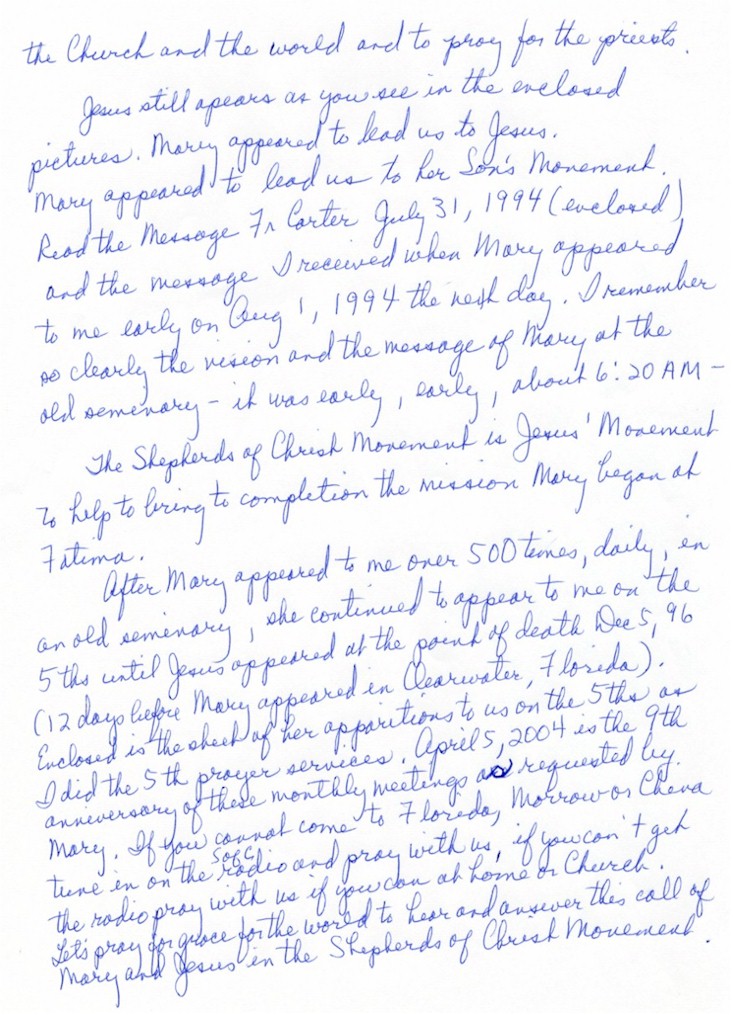 the Church and the world and to pray for the priests.
Jesus still apears as you see in the enclosed
pictures. Mary appeared to lead us to Jesus.
Mary appeared to lead us to her Son's Movement.
Read the Message Fr Carter July 31, 1994 (enclosed)
and the message I received when Mary appeared
to me early on Aug 1, 1994 the next day. I remember
so clearly the vision and the message of Mary at the
old semenary – it was early, early, about 6:20 AM –
The Shepherds of Christ Movement is Jesus' Movement
to help to bring to completion the mission Mary began at
Fatima.
After Mary appeared to me over 500 times, daily, in
an old semenary, she continued to appear to me on the
5ths until Jesus appeared at the point of death Dec 5, 96
(12 days before Mary appeared in Clearwater, Florida).
Enclosed is the sheet of her apparitions to us on the 5ths as
I did the 5th prayer services. April 5, 2004 is the 9th
anniversary of these monthly meetings as requested by
Mary. If you cannot come to Florida, Morrow or China
tune in on the SofC radio and pray with us, if you can't get
the radio pray with us if you can at home or Church.
Let's pray for grace for the world to hear and answer this call of
Mary and Jesus in the Shepherds of Christ Movement.